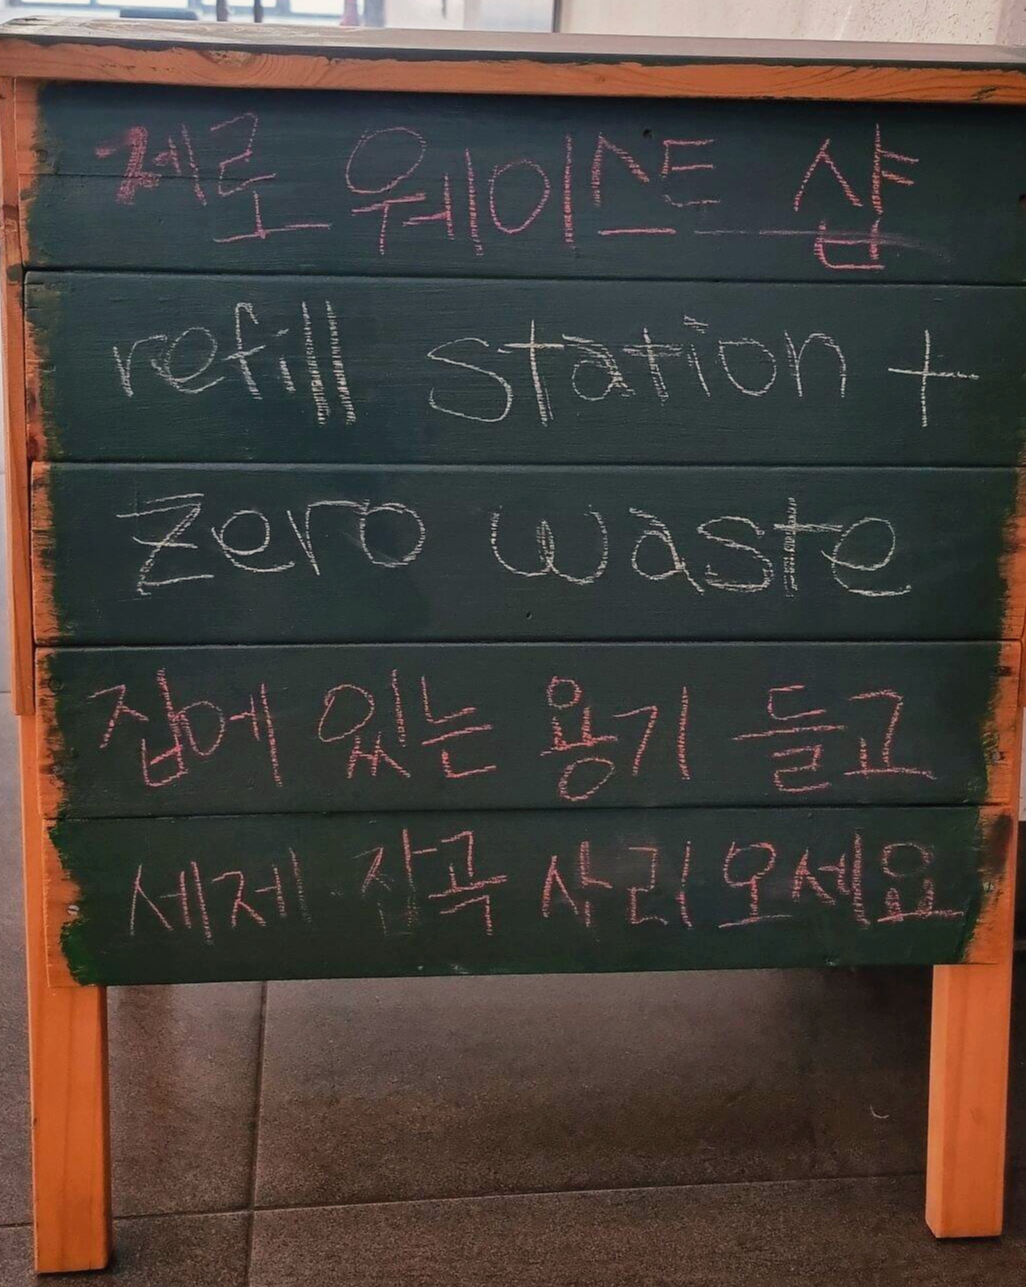 제로 웨이스트 샵
refill station +
zero waste
집에 있는 용기 들고
세제 잡곡 사러 오세요